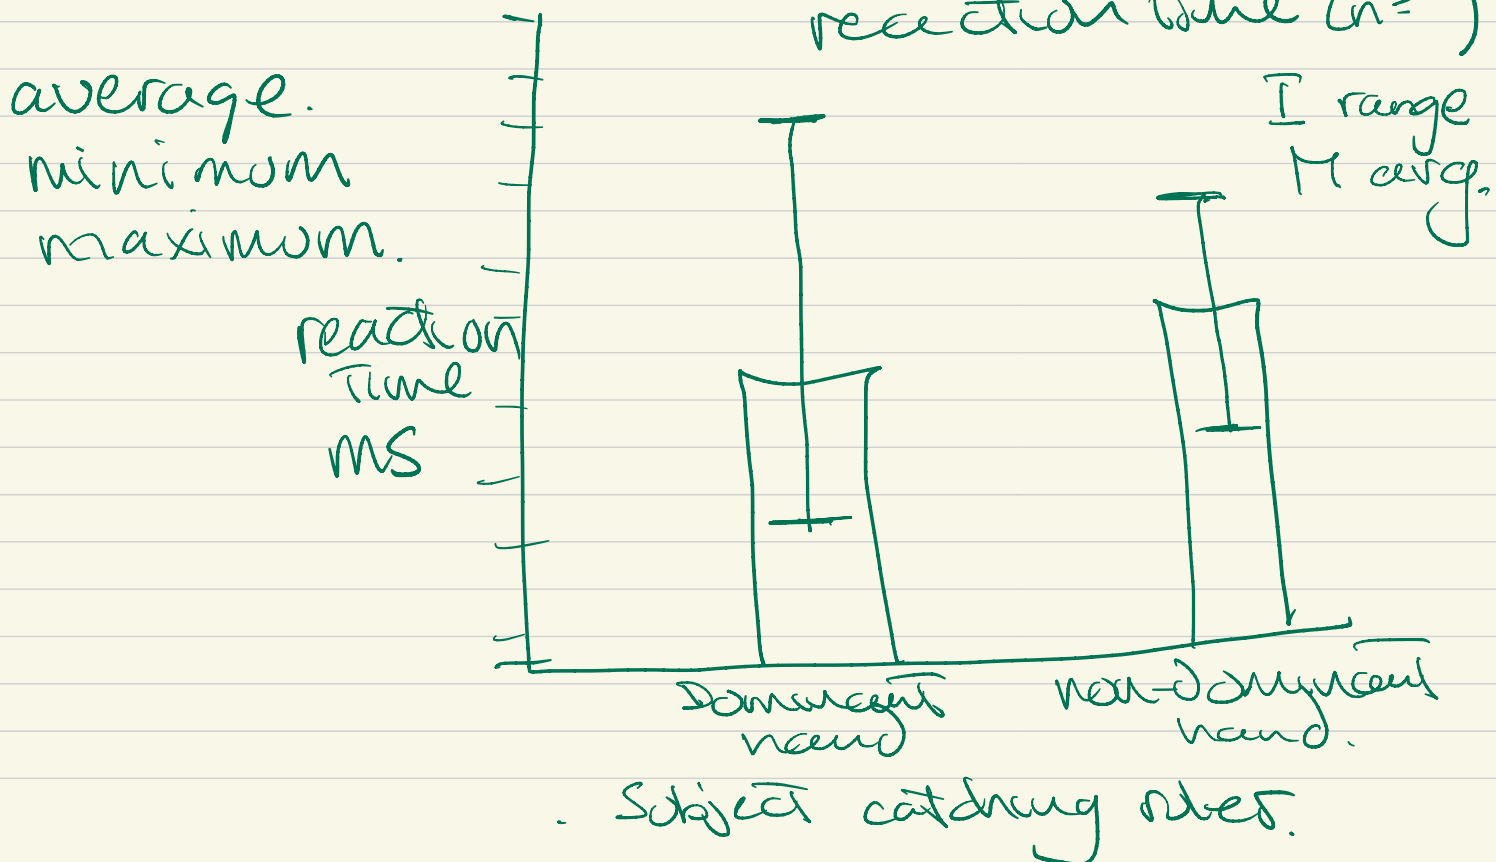 reaction time (n= )
average.
minimum
maximum.
I range
M avg.
reaction
Time
ms
Dominant
hand
non-Dominant
hand.
. Subject catching ruler.